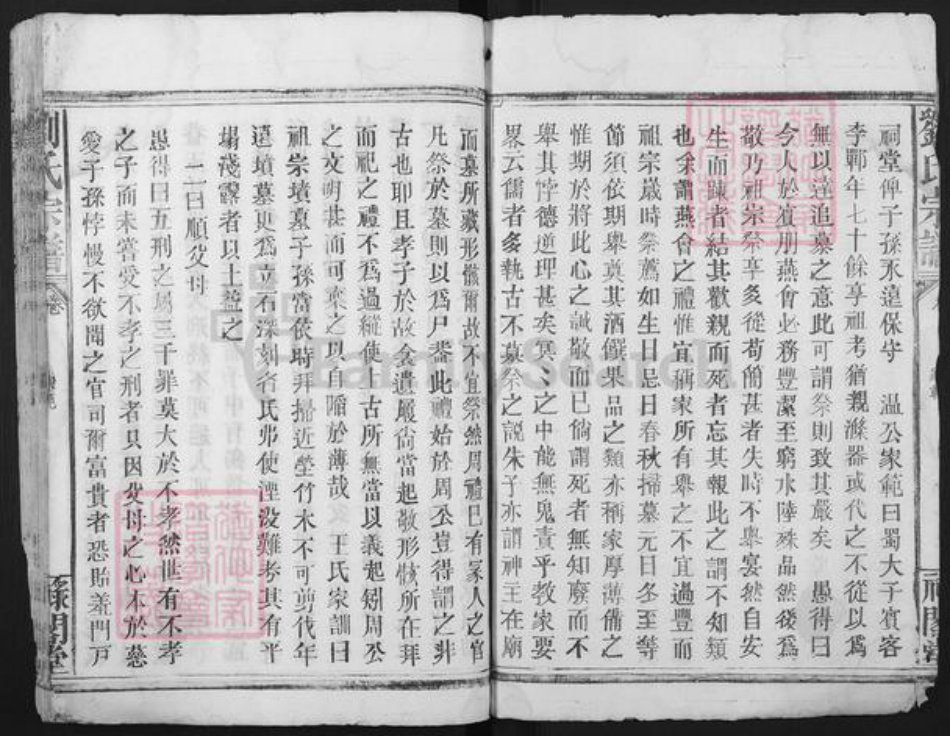 劉氏宗譜
祠堂俾子孫永遠保守 温公家範曰蜀大子賓客
李鄲年七十餘享祖考猶親滌器或代之不從以爲
無以達追慕之意此可謂祭則致其嚴矣 愚得曰
今人於賓朋燕會必務豐潔至窮水陸殊品然後爲
敬乃祖宗祭享多從苟簡甚者失時不舉宴然自安
生而踈者結其歡親而死者忘其報此之謂不知類
也余謂燕會之禮惟宜稱家所有舉之不宜過豐而
祖宗歲時祭薦如生日忌日春秋掃墓元日冬至等
節須依期舉奠其酒饌果品之類亦稱家厚薄備之
惟期於將此心之誠敬而巳倘謂死者無知廢而不
舉其悖德逆理甚矣冥冥之中能無鬼責乎教家要
畧云儒者多執古不墓祭之說朱子亦謂神主在廟
而墓所藏形骸爾故不宜祭然周禮巳有冢人之官
凡祭於墓則以爲尸葢此禮始於周公豈得謂之非
古也耶且孝子於故衾遺履尙當起敬形骸所在拜
而祀之禮不爲過縱使上古所無當以義起矧周公
之文明甚而可棄之以自陷於薄哉 王氏家訓曰
祖宗墳墓子孫當依時拜掃近塋竹木不可剪伐年
遠墳墓更爲立石深刻名氏弗使湮没難考其有平
塌淺露者以土益之
二曰順父母
愚得曰五刑之屬三千罪莫大於不孝然世有不孝
之子而未嘗受不孝之刑者只因父母之心本於慈
愛子孫悖慢不欲聞之官司爾富貴者恐貽羞門戸
劉氏宗譜
卷
祿閣堂
FamilySearch